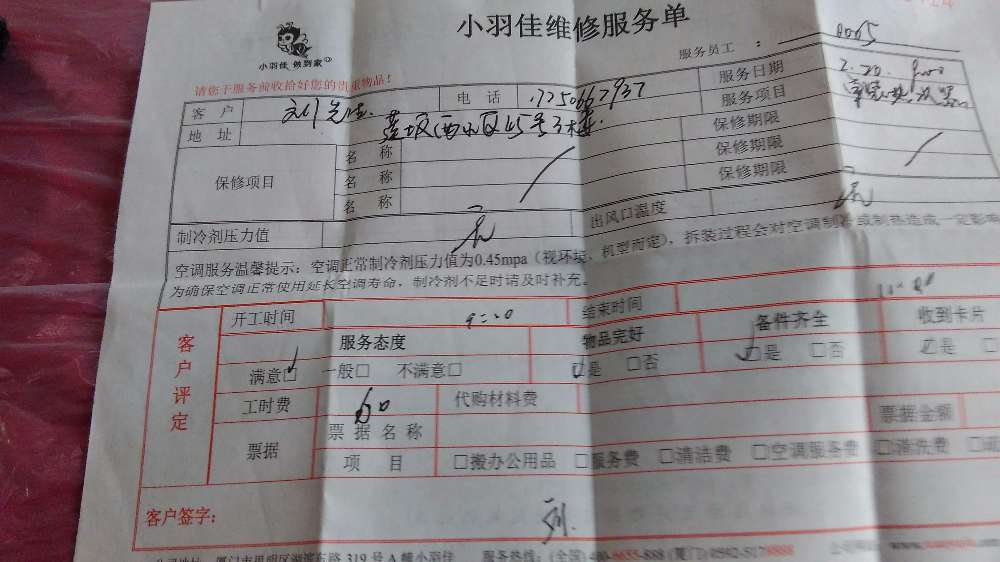 小羽佳维修服务单
小羽佳 做到家
服务员工 : 0005
请您于服务前收拾好您的贵重物品!
客户 刘先生 电话 服务日期 2.20
地址 西 区45号3楼 服务项目
保修项目 名称 保修期限
名称 保修期限
名称 保修期限
制冷剂压力值 出风口温度
空调服务温馨提示:空调正常制冷剂压力值为0.45mpa(视环境、机型而定),拆装过程会对空调制冷或制热造成一定影响
为确保空调正常使用延长空调寿命,制冷剂不足时请及时补充。
客户评定
开工时间 9:20 结束时间
服务态度 物品完好 备件齐全 收到卡片
满意□ 一般□ 不满意□ □是 □否 □是 □否 □是
工时费 代购材料费
票据 票据名称 票据金额
项目 □搬办公用品 □服务费 □清洁费 □空调服务费 □清洗费
客户签字: 刘
319号A幢小羽佳 服务热线:(全国)400-6655-888 (厦门)0592-5178888